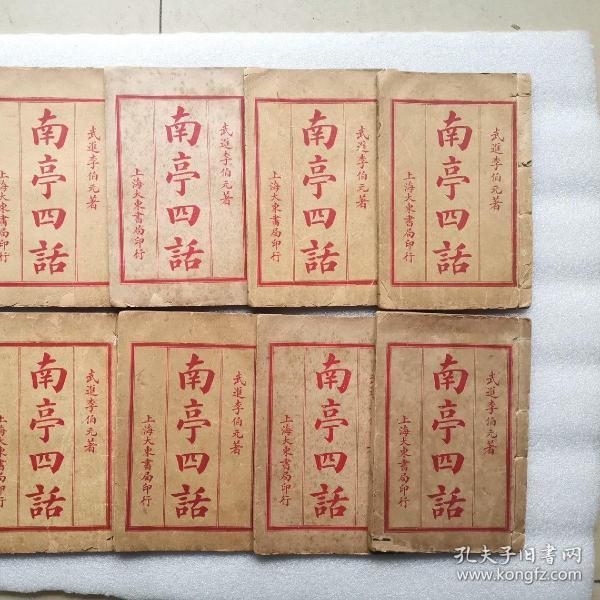 武進李伯元著
南亭四話
上海大東書局印行
武進李伯元著
南亭四話
上海大東書局印行
武進李伯元著
南亭四話
上海大東書局印行
武進李伯元著
南亭四話
上海大東書局印行
武進李伯元著
南亭四話
上海大東書局印行
南亭四話
上海大東書局印行
武進李伯元著
南亭四話
上海大東書局印行
武進李伯元著
南亭四話
上海大東書局印行
孔夫子旧书网
www.kongfz.com